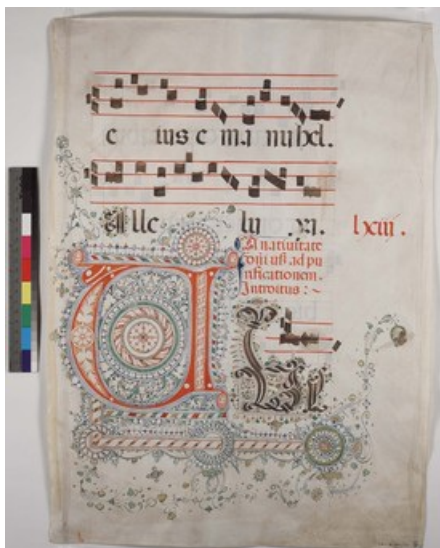 e ius e ma nu hel.
Alle lu ya. lxiii.
A natiuitate
ad pu
rificationem.
Introitus :~
U